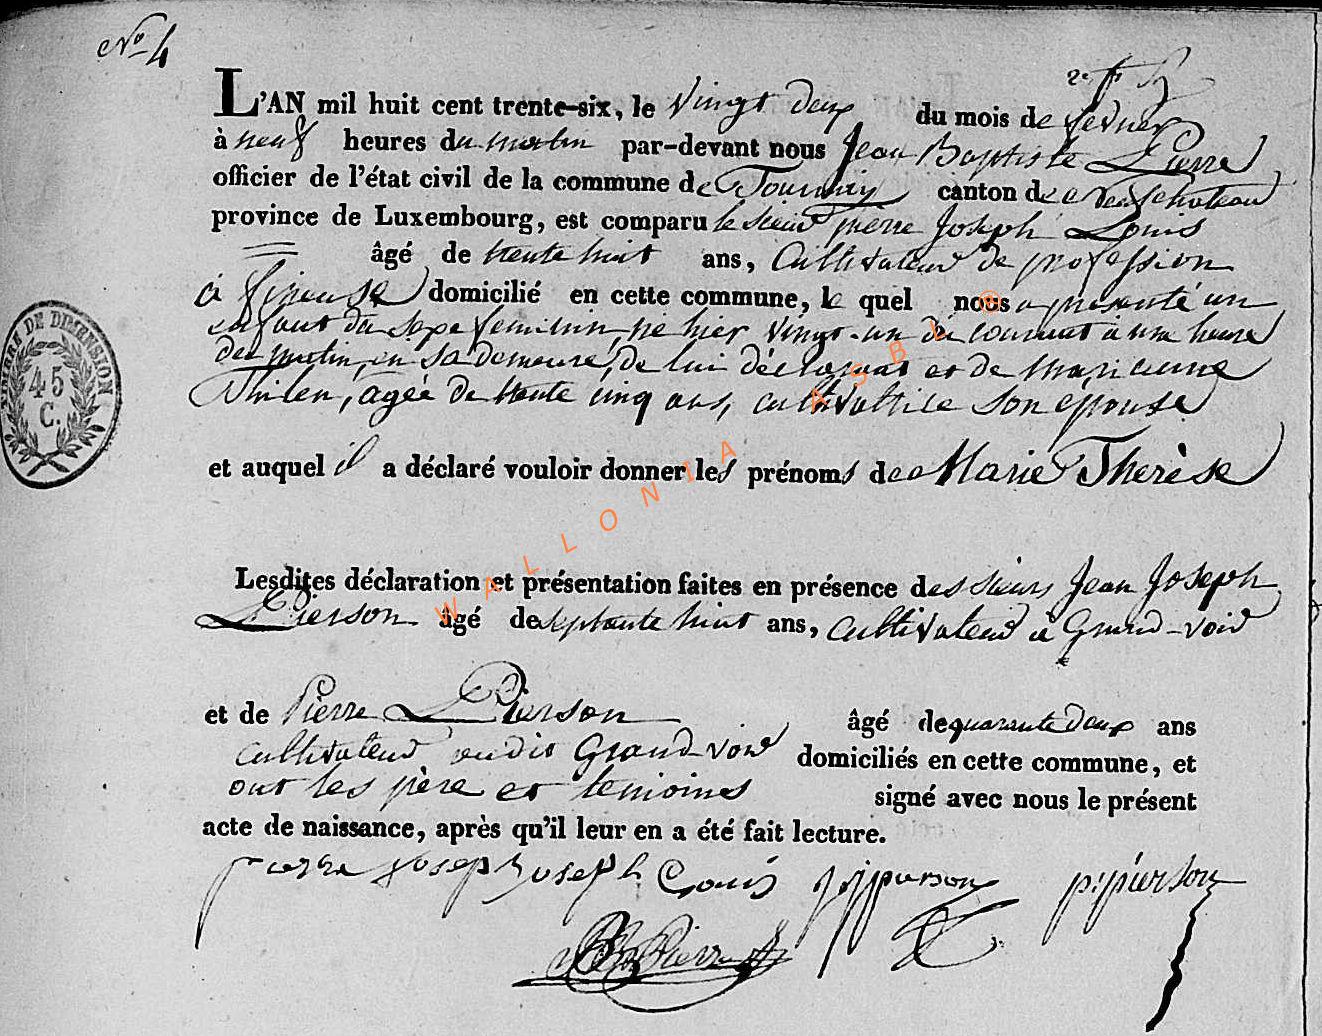 No 4
2e f
L'AN mil huit cent trente-six, le vingt deux du mois de fevrier
à neuf heures du matin par-devant nous Jean Baptiste Pierre
officier de l'état civil de la commune de Tournay canton de Neufchateau
province de Luxembourg, est comparu le sieur pierre Joseph Louis
âgé de trente huit ans, Cultivateur de profession
à domicilié en cette commune, le quel nous a présenté un
enfant du sexe feminin, né hier vingt-un du courant à une heure
du matin, en sa demeure, de lui déclarant et de Marianne
Thilen, agée de trente cinq ans, cultivatrice son epouse
et auquel il a déclaré vouloir donner les prénoms de Marie Therèse
Lesdites déclaration et présentation faites en présence des sieurs Jean Joseph
Pierson âgé de septante huit ans, cultivateur à Grand-voir
et de Pierre Pierson âgé de quarante deux ans
cultivateur audit Grand-voir domiciliés en cette commune, et
ont les père et temoins signé avec nous le présent
acte de naissance, après qu'il leur en a été fait lecture.
pierre Joseph Joseph Louis jjpierson p:pierson
JB Pierre
TIMBRE DE DIMENSION
45
C.
WALLONIA ASBL ®